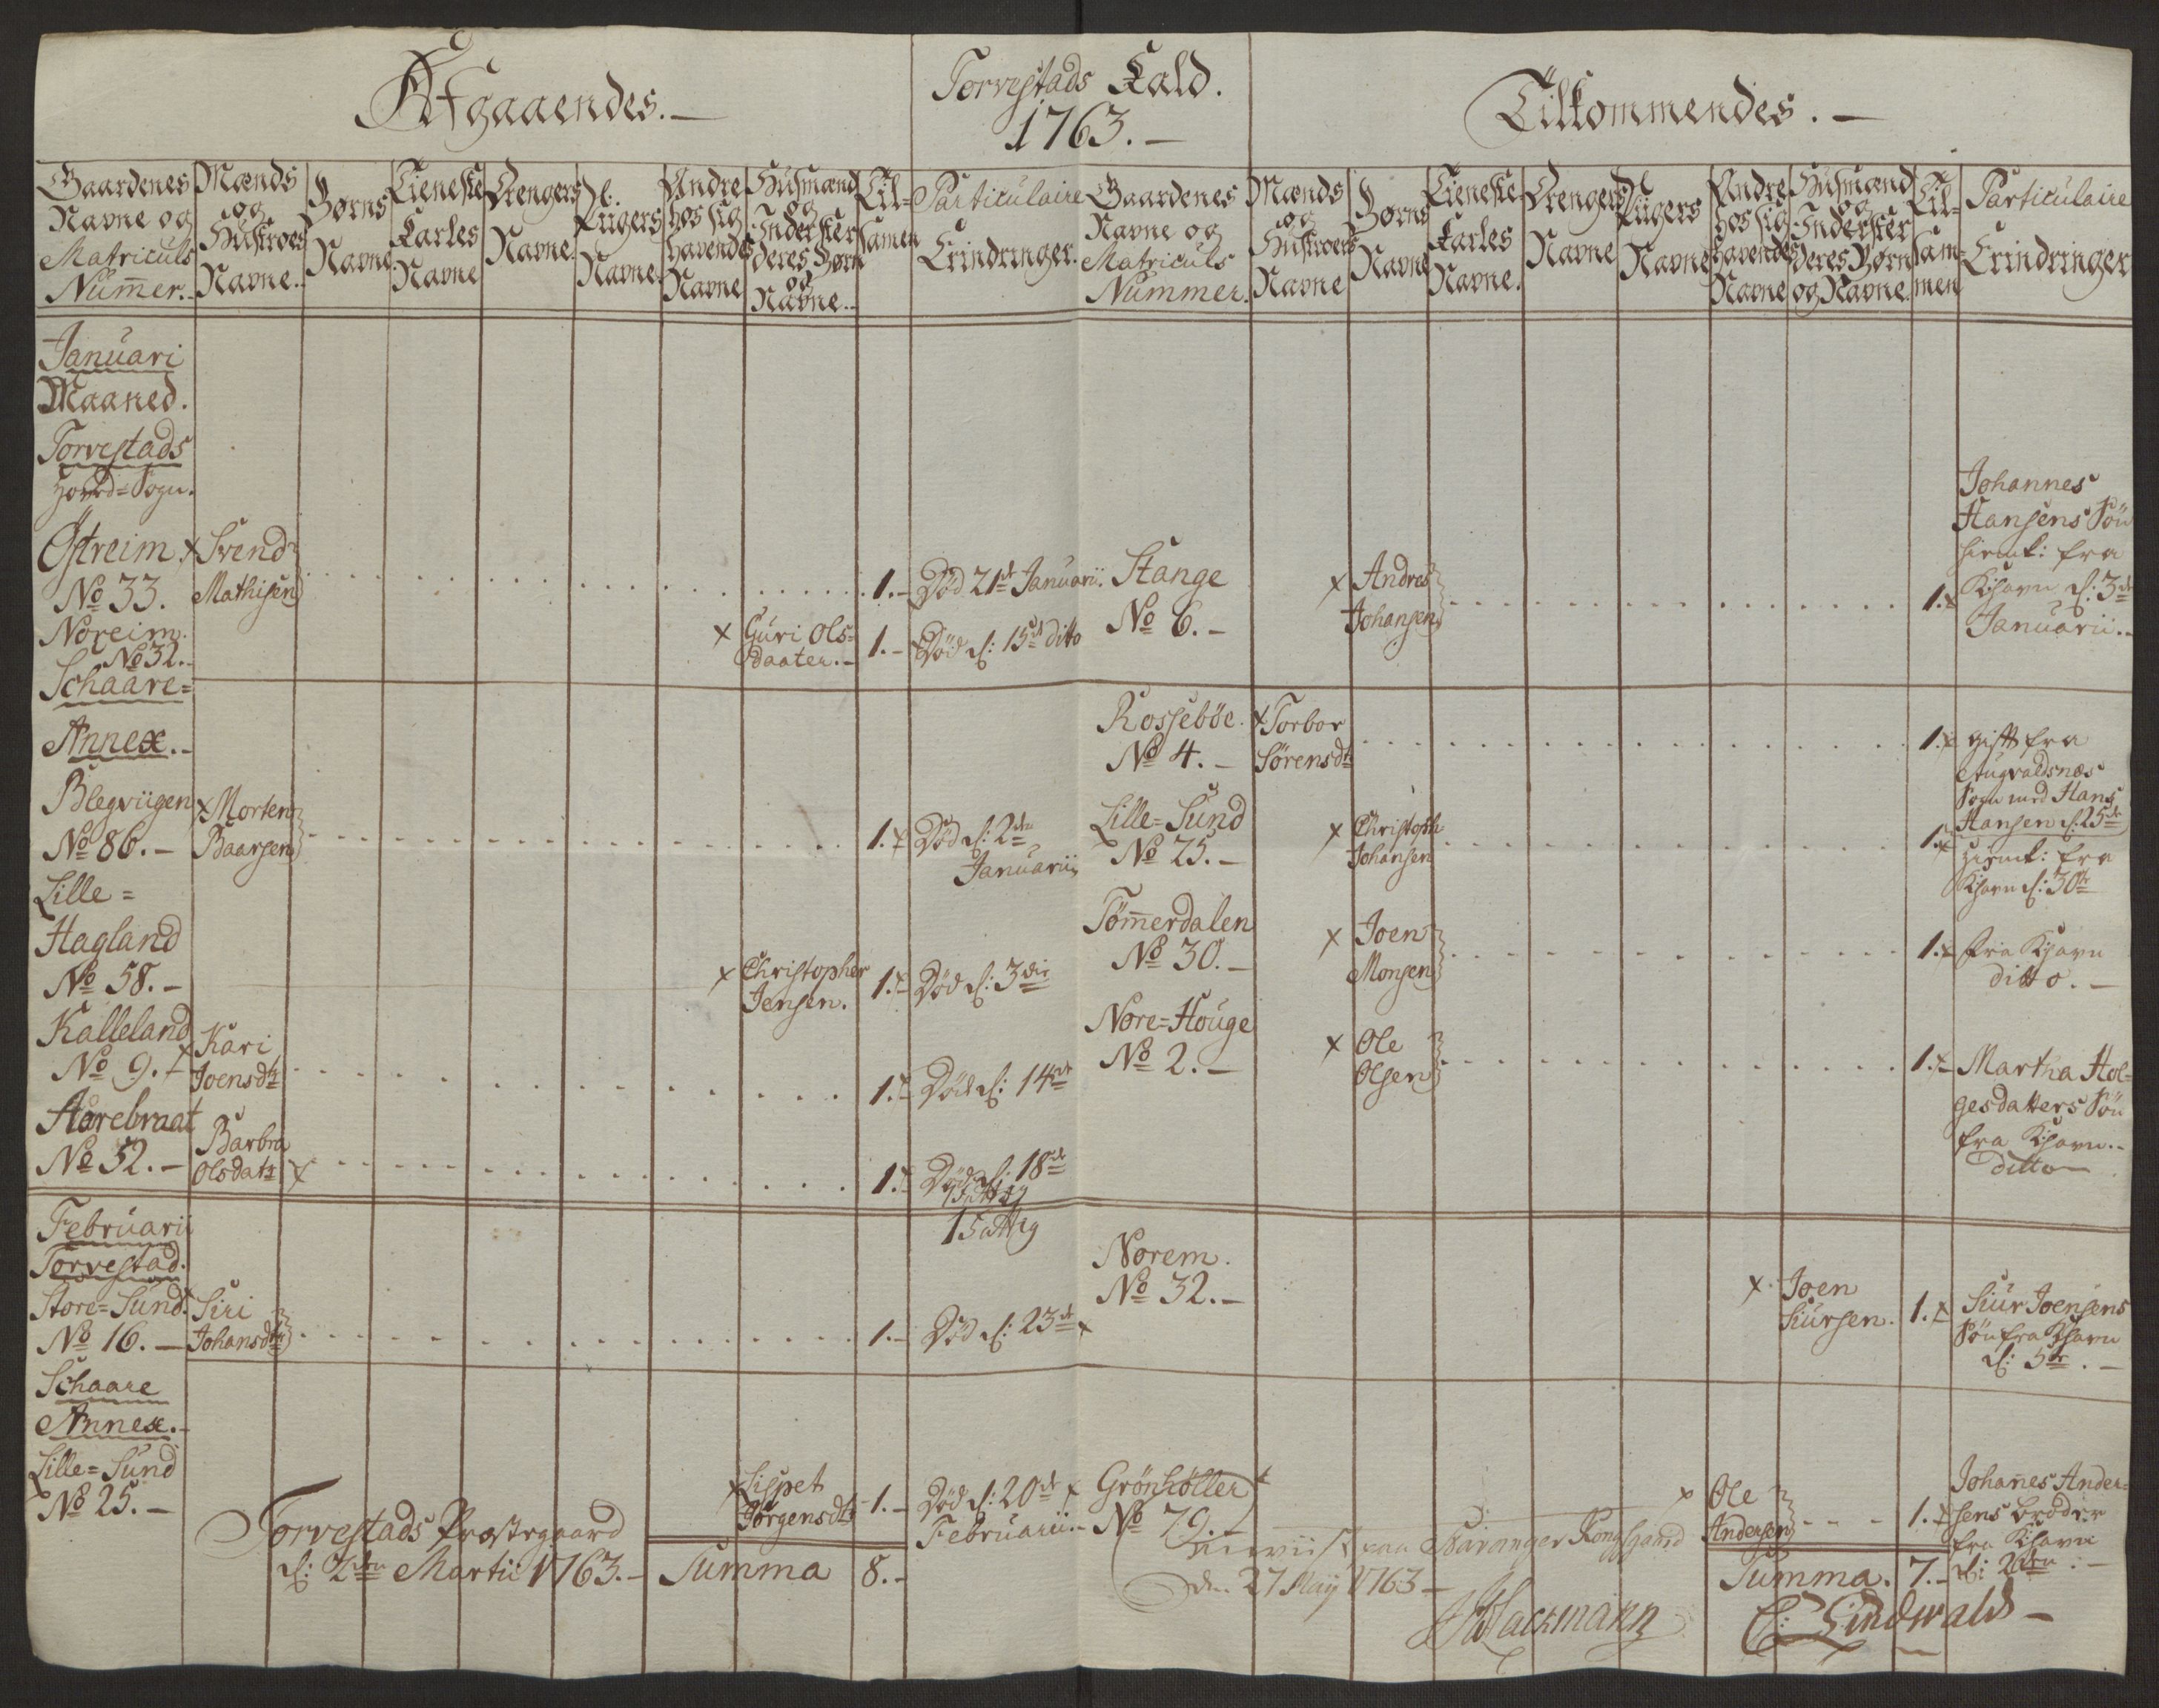 Afgaaendes.
Torvestads Kald.
1763.
Tilkommendes.
Gaardenes
Navne og
Matriculs
Num̄er.
Mænds
og
Hustroes
Navne.
Børns
Navne.
Tieneste
Karles
Navne
Drenges
Navne.
Pigers
Navne.
Andre
hos sig
havendes
Navne
Husmænd
og
Inderster
deres Børn
og
Navne.
Til-
samen
Particulaire
Erindringer.
Gaardenes
Navne og
Matriculs
Nummer.
Mænds
og
Hustroers
Navne
Børns
Navne
Tieneste
Karles
Navne.
Drenges
Navne
Pigers
Navne
Andre
hos sig
havendes
Navne
Husmænd
og
Inderster
deres Børn
og Navne.
Til-
sam-
men
Particulaire
Erindringer
Januari
Maaned.
Torvestads
Hoved-Sogn.
Østreim x Svend
No 33. Mathisen 1.- Død 21de Januarii.
Noreim
No 32. x Guri Ols-
daater.- 1.- Død d: 15de ditto
Schaare-
Annex.-
Blegviigen x Morten
No 86.- Baarsen 1. Død d: 2den
Januarii
Lille-
Hagland
No 58.- x Christopher
Jensen. 1. Død d: 3die
Kalleland x Kari
No 9. Joensdtr 1. Død d: 14de
Harebraat
No 52.- Barbra
Olsdatr x 1. Død d: 18de
Februarii
Torvestad.
Store-Sund. Siri
No 16.- Johansdtr 1.- Død d: 23de x
Schaare
Annex.-
Lille-Sund
No 25.-
x Lispet
Jørgensdtr 1.- Død d: 20de x
Februarii.-
Torvestads Præstegaard
d: 2den Martii 1763.- Summa 8.-
Stange
No 6.-
x Andres
Johansen 1.
Johannes
Hansens Søn
hiemk: fra
Kihavn d: 3de
Januarii.-
Rossebøe. x Torbor
No 4.- Sørensdtr 1. gift fra
Augvaldsnæs
Sogn med Hans
Hansen d: 25de
Lille-Sund
No 25.-
x Christoph
Johansen 1. hiemk: fra
Kihavn d: 30te
Tøm̄erdalen
No 30.-
x Joen
Monsen 1. fra Kihavn
ditto.-
Nore-Houge
No 2.-
x Ole
Olsen 1. Martha Hol-
gesdatters Søn
fra Kihavn.-
ditto
Norem.
No 32.-
x Joen
Siursen. 1. Siur Joensens
Søn fra Kihavn
d: 5te.-
Grønhøller
No 79.
x Ole
Andersen 1. Johan̄es Ander-
sens Broder
fra Kihavn
d: 2den.-
Summa. 7.-
Stavanger Kongsgaard
den 27 Maij 1763
Hackmann
C: Lindwald